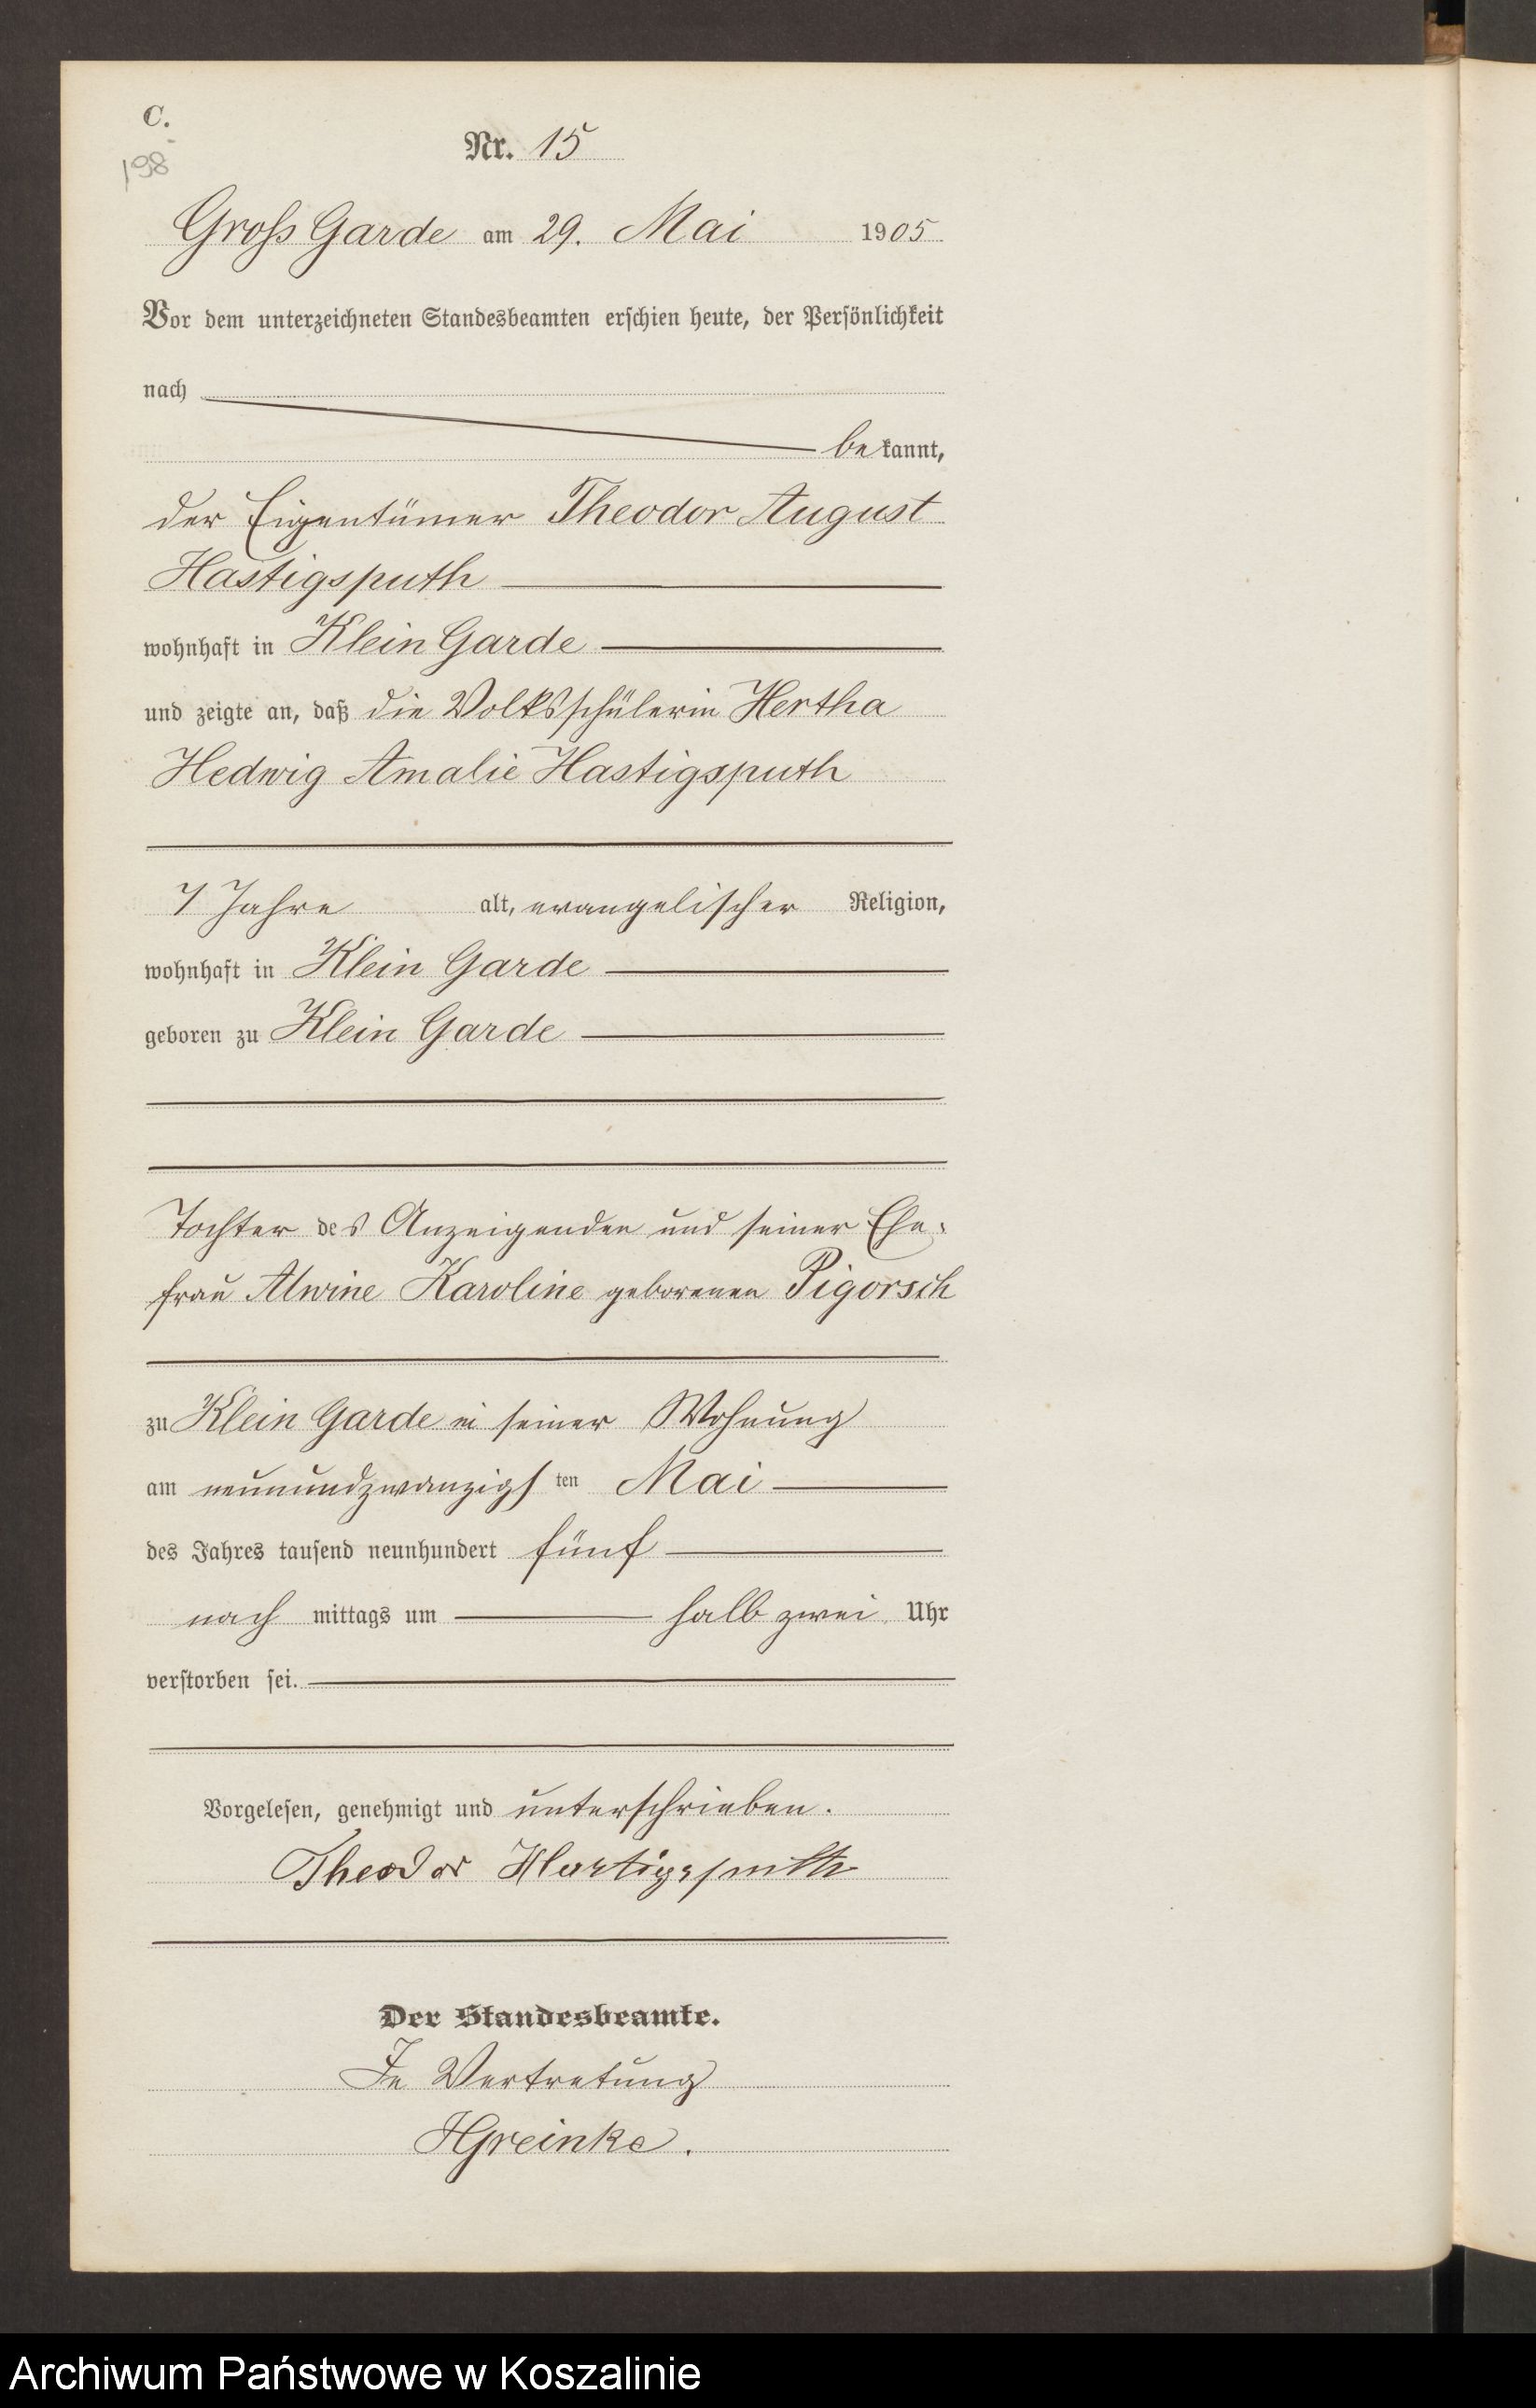 C.
198
Nr. 15
Gross Garde am 29. Mai 1905
Vor dem unterzeichneten Standesbeamten erschien heute, der Persönlichkeit
nach
bekannt,
der Eigentümer Theodor August
Hastigsputh
wohnhaft in Klein Garde
und zeigte an, daß die Volksschülerin Hertha
Hedwig Amalie Hastigsputh
7 Jahre alt, evangelischer Religion,
wohnhaft in Klein Garde
geboren zu Klein Garde
Tochter des Anzeigenden und seiner Ehe-
frau Alwine Karoline geborenen Pigorsch
zu Klein Garde in seiner Wohnung
am neunundzwanzigsten Mai
des Jahres tausend neunhundert fünf
nach mittags um halb zwei Uhr
verstorben sei.
Vorgelesen, genehmigt und unterschrieben.
Theodor Hastigsputh
Der Standesbeamte.
In Vertretung
HGreinke.
Archiwum Państwowe w Koszalinie